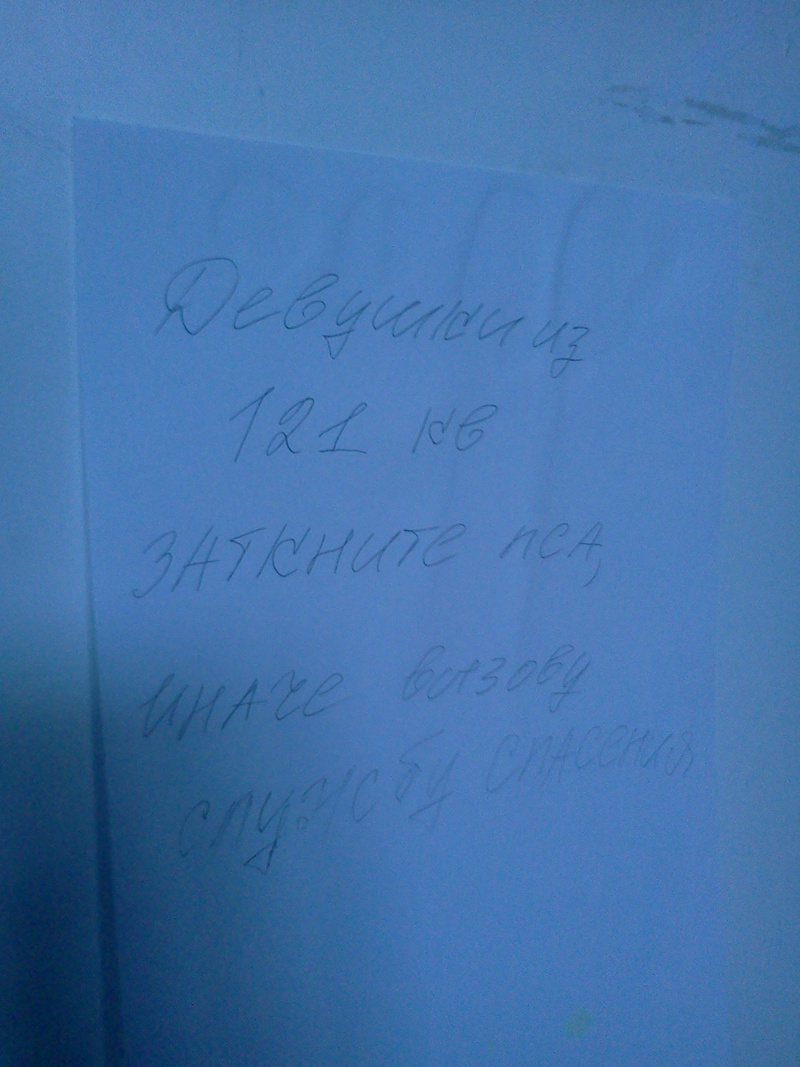 Девушки из
121 кв
заткните пса,
иначе вызову
службу спасения